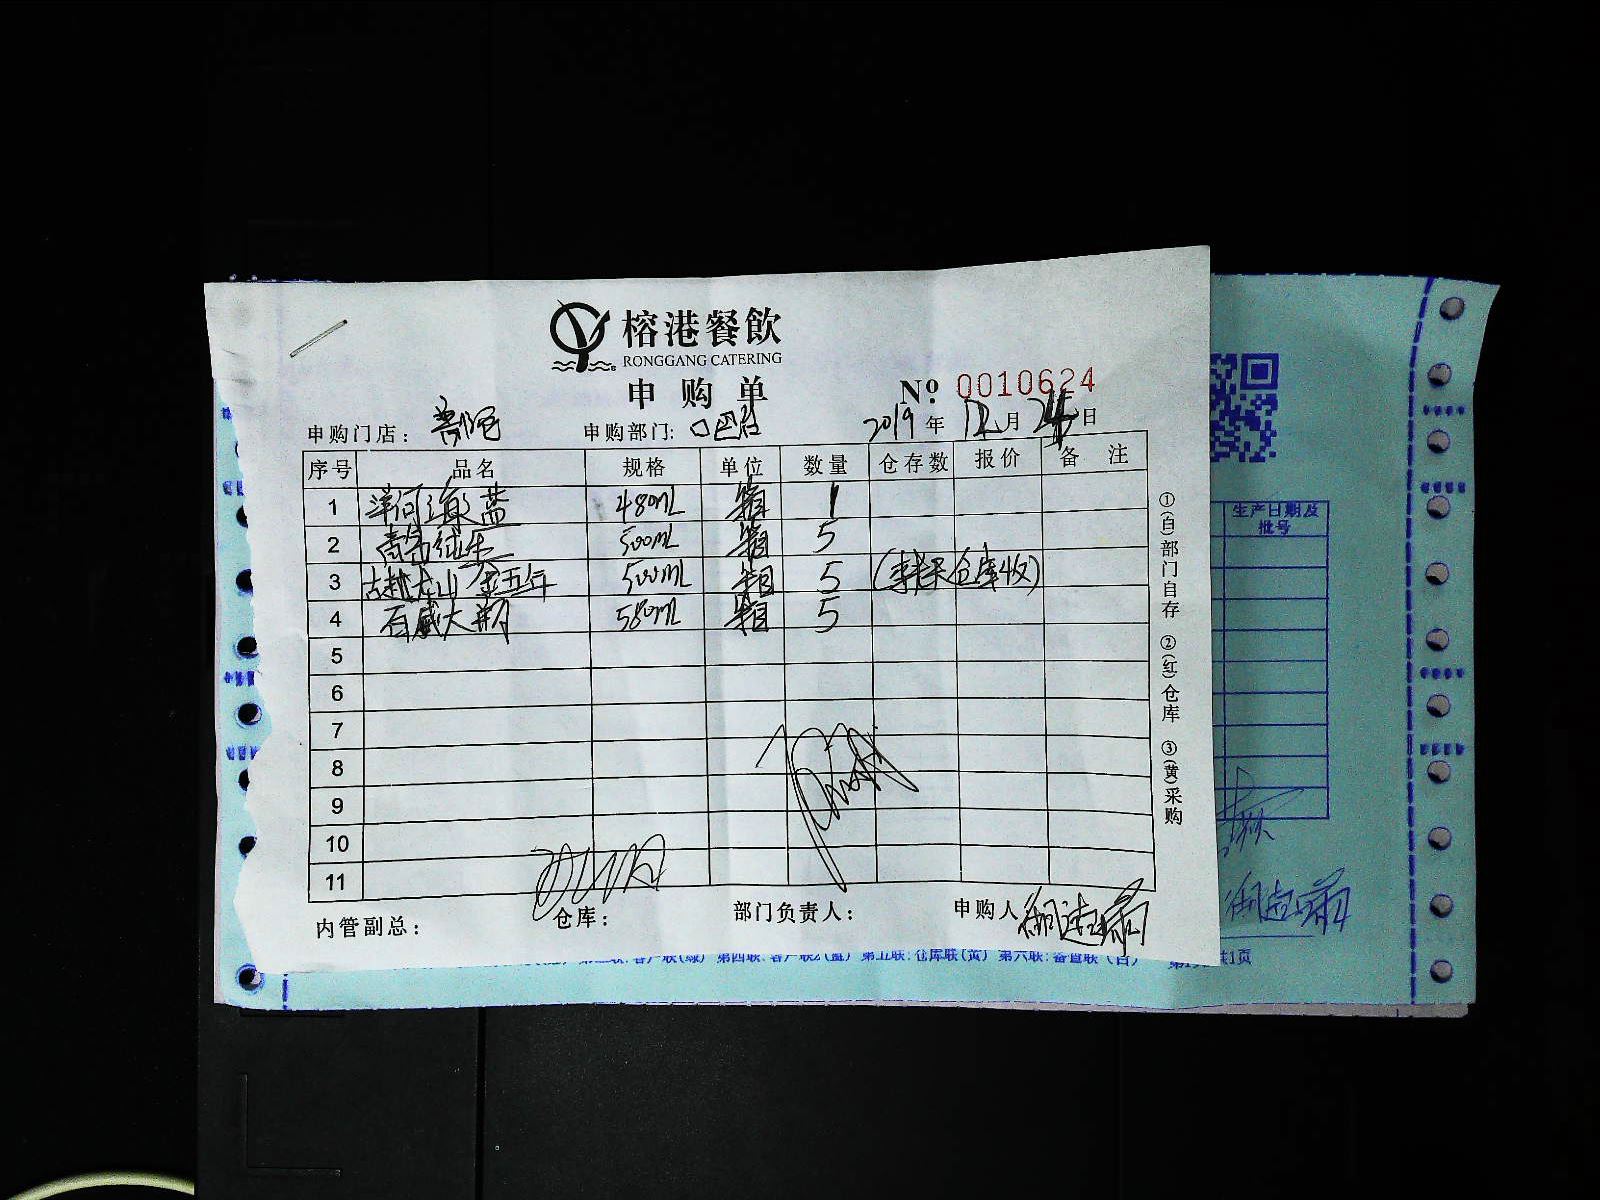 榕港餐飲
RONGGANG CATERING
申购单
№ 0010624
申购门店： 申购部门：吧台 2019年12月24日
序号 品名 规格 单位 数量 仓存数 报价 备注
1 洋河海之蓝 480ML 箱 1
2 青岛纯生 500ML 箱 5
3 古越龙山金五年 500ML 箱 5 仓库收)
4 百威大瓶 580ML 箱 5
5
6
7
8
9
10
11
内管副总： 仓库： 部门负责人： 申购人
①(白)部门自存 ②(红)仓库 ③(黄)采购
生产日期及
批号
客户联(绿) 第四联:客户联2(蓝) 第五联:仓库联(黄) 第六联:备查联(白) 共1页